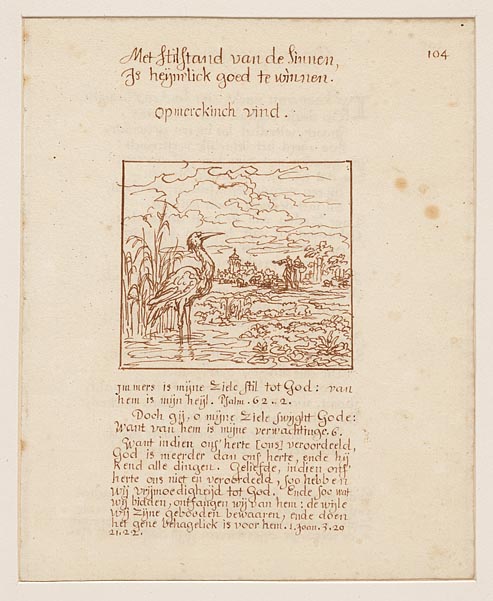 104
Met Stilstand van de Sinnen,
Is heijm'lick goed te winnen.
opmerckinch vind.
Immers is mijne Ziele stil tot God: van
hem is mijn heijl. Psalm. 62..2.
Doch gij, o mijne Ziele swijght Gode:
Want van hem is mijne verwachtinge. 6.
Want indien ons' herte [ons] veroordeeld,
God is meerder dan ons' herte, ende hij
kend alle dingen. Geliefde, indien ons'
herte ons niet en veroordeeld, soo hebben
wij vrijmoedigheijd tot God. Ende soo wat
wij bidden, ontfangen wij van hem: de wijle
wij Zijne gebooden bewaaren, ende doen
het gene behagelick is voor hem. 1. Joan. 3. 20
21. 22.